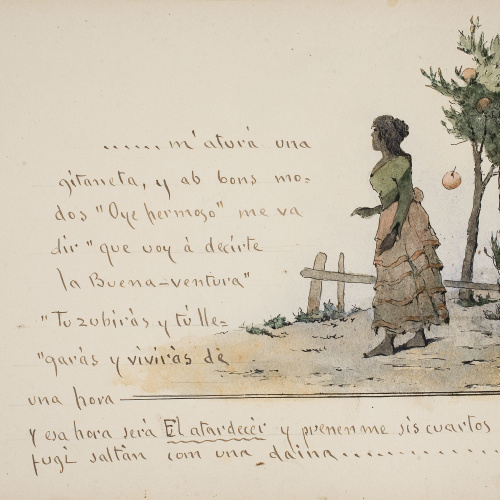 ...... m'aturá una
gitaneta, y ab bons mo-
dos "Oye hermoso" me va
dir "que voy á decirte
la Buena-ventura"
"Tu zubirás y tú lle-
"garás y vivirás de
una hora
y esa hora será El atardecer y prenenme sis cuartos
fugí saltan com una daina..............